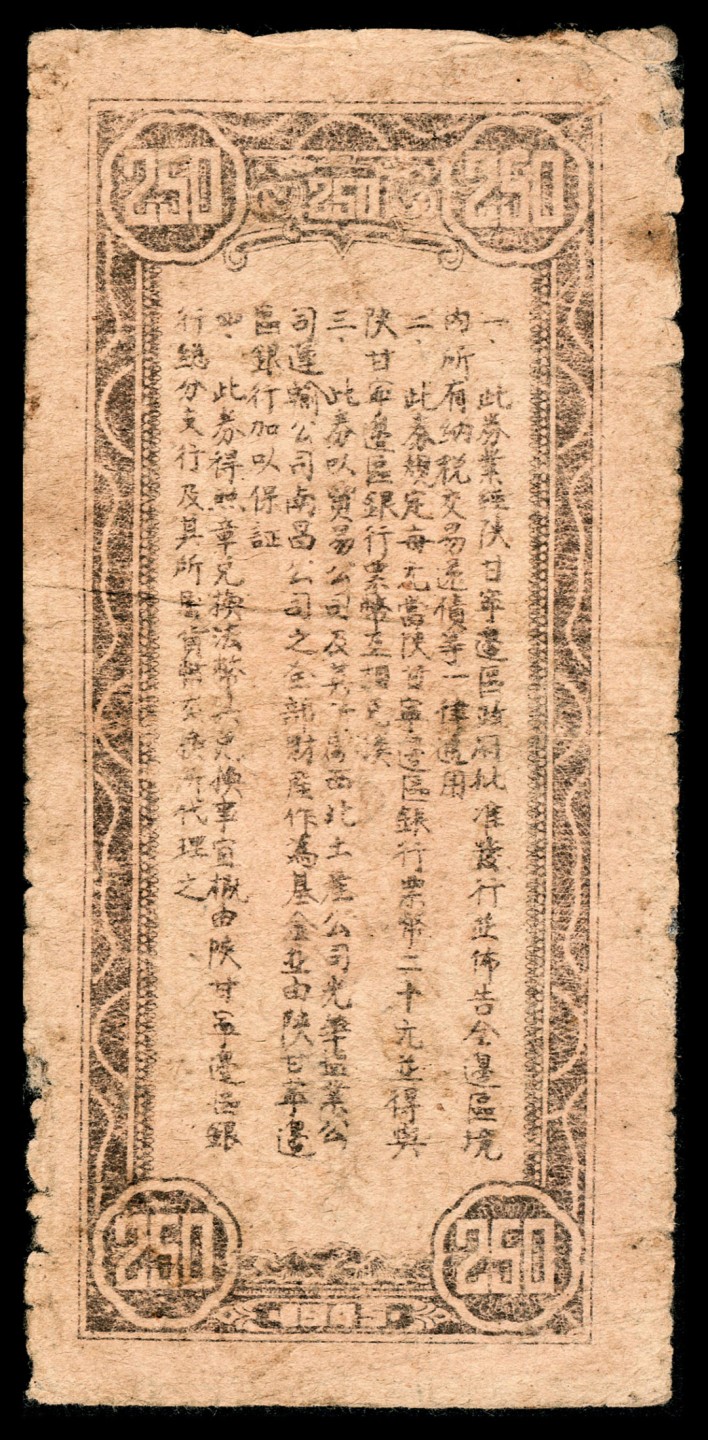 250 250 250
一、此券業經陝甘寧邊區政府批准發行並佈告全邊區境
內所有納稅交易還債等一律通用
二、此券規定每元當陝甘寧邊區銀行票幣二十元並得與
陝甘寧邊區銀行票幣互相兌換
三、此券以貿易公司及其所屬西北土產公司光華鹽業公
司運輸公司南昌公司之全部財產作為基金並由陝甘寧邊
區銀行加以保証
四、此券得照章兌換法幣其兌換事宜概由陝甘寧邊區銀
行總分支行及其所屬貨幣交換所代理之
250 250